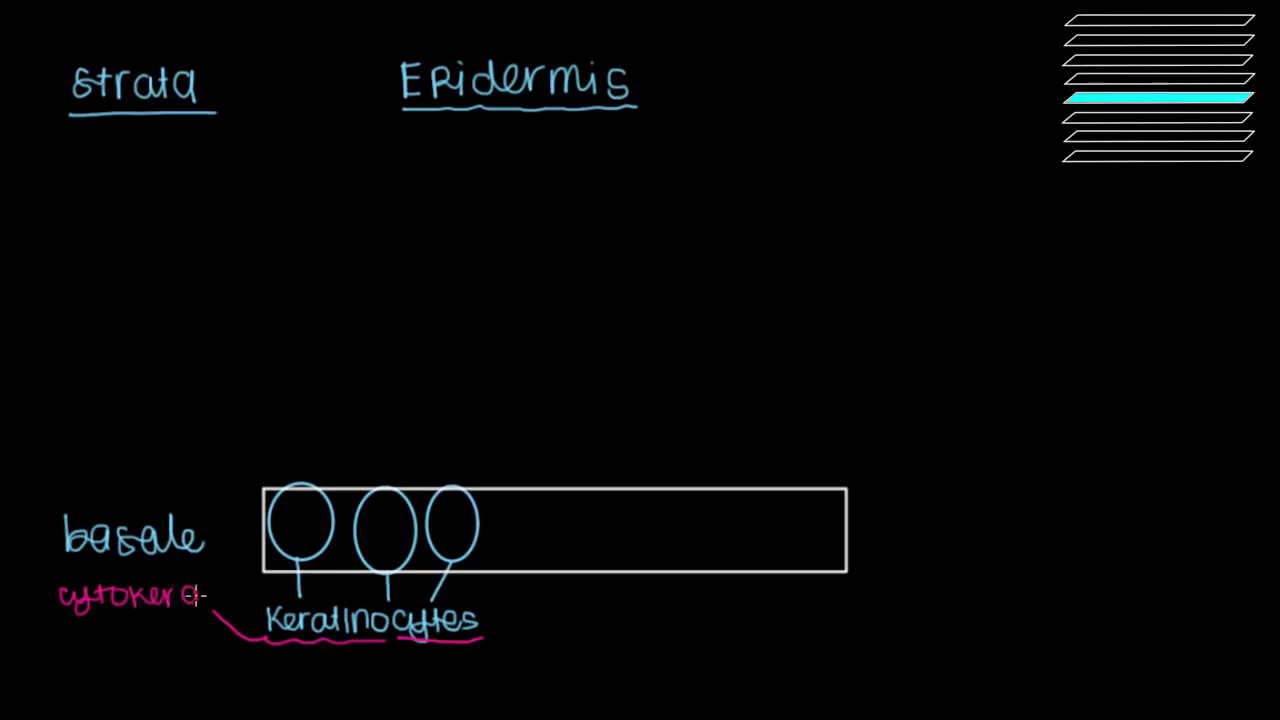 strata
Epidermis
basale
cytokera
Keratinocytes